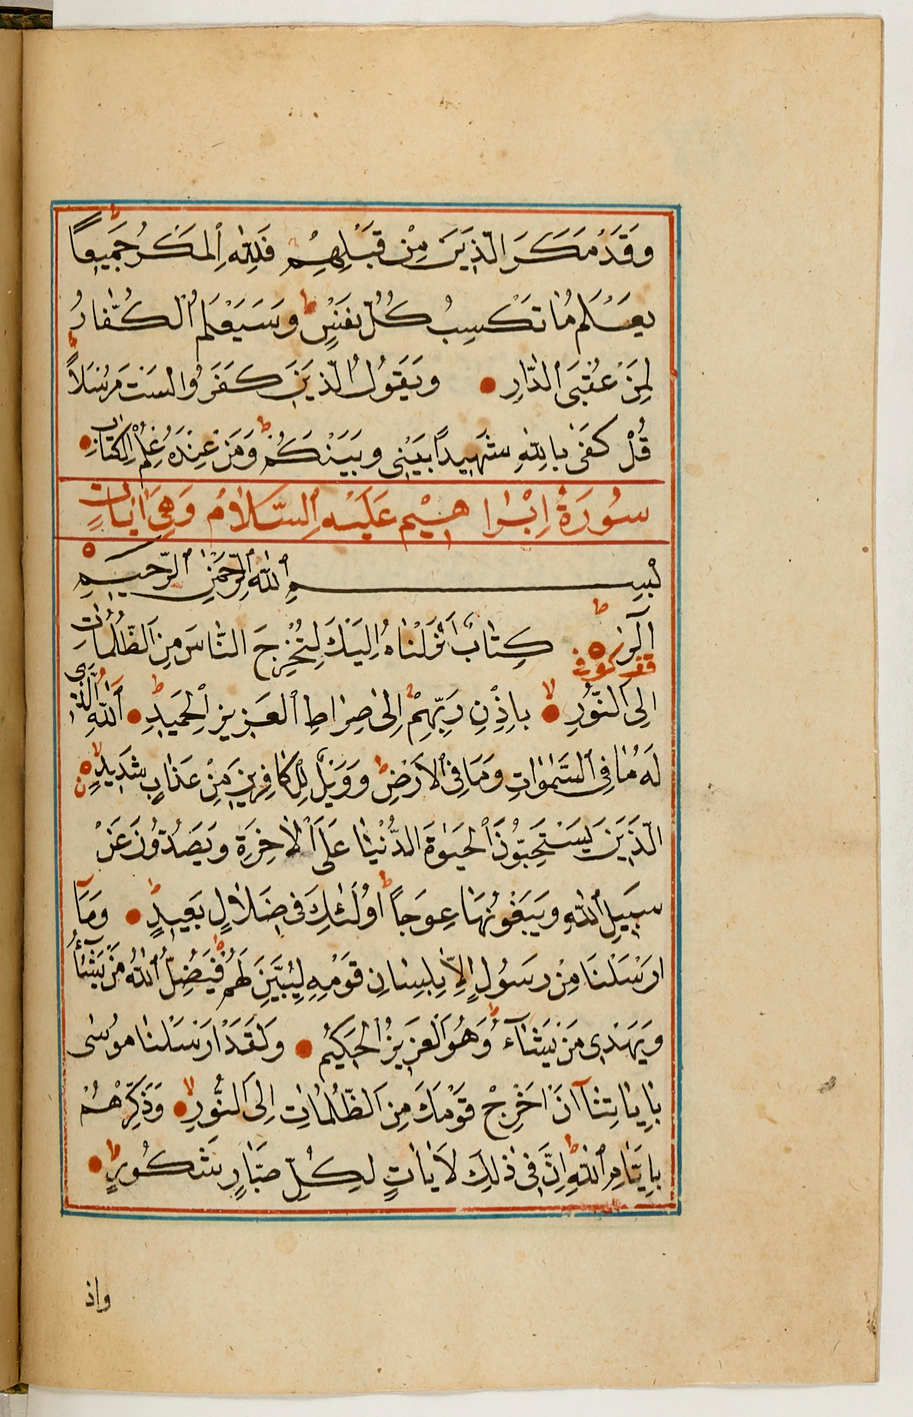 وَقَدْ مَكَرَ الَّذِينَ مِنْ قَبْلِهِمْ فَلِلّٰهِ الْمَكْرُ جَمِيعاً ط
يَعْلَمُ مَا تَكْسِبُ كُلُّ نَفْسٍ ط وَسَيَعْلَمُ الْكُفَّارُ
لِمَنْ عُقْبَى الدَّارِ وَيَقُولُ الَّذِينَ كَفَرُوا لَسْتَ مُرْسَلاً ط
قُلْ كَفٰى بِاللّٰهِ شَهِيداً بَيْنِى وَبَيْنَكُمْ ط وَمَنْ عِنْدَهُ عِلْمُ الْكِتَابِ
سُورَةُ اِبْرَاهِيْمِ عَلَيْهِ السَّلَامُ وَهِيَ اٰيَاتٍ
بِسْمِ اللّٰهِ الرَّحْمٰنِ الرَّحِيمِ
الٓرٰ ط كِتَابٌ اَنْزَلْنَاهُ اِلَيْكَ لِتُخْرِجَ النَّاسَ مِنَ الظُّلُمَاتِ
اِلَى النُّورِ لا بِاِذْنِ رَبِّهِمْ اِلٰى صِرَاطِ الْعَزِيزِ الْحَمِيدِ ط اَللّٰهِ الَّذِى
لَهُ مَا فِى السَّمٰوَاتِ وَمَا فِى الْاَرْضِ ط وَوَيْلٌ لِلْكَافِرِينَ مِنْ عَذَابٍ شَدِيدٍ لا
الَّذِينَ يَسْتَحِبُّونَ الْحَيٰوةَ الدُّنْيَا عَلَى الْاٰخِرَةِ وَيَصُدُّونَ عَنْ
سَبِيلِ اللّٰهِ وَيَبْغُونَهَا عِوَجاً ط اُولٰئِكَ فِى ضَلَالٍ بَعِيدٍ ط وَمَآ
اَرْسَلْنَا مِنْ رَسُولٍ اِلَّا بِلِسَانِ قَوْمِهِ لِيُبَيِّنَ لَهُمْ ط فَيُضِلُّ اللّٰهُ مَنْ يَشَآءُ
وَيَهْدِى مَنْ يَشَآءُ ط وَهُوَ الْعَزِيزُ الْحَكِيمُ وَلَقَدْ اَرْسَلْنَا مُوسٰى
بِاٰيَاتِنَآ اَنْ اَخْرِجْ قَوْمَكَ مِنَ الظُّلُمَاتِ اِلَى النُّورِ لا وَذَكِّرْهُمْ
بِاَيَّامِ اللّٰهِ ط اِنَّ فِى ذٰلِكَ لَاٰيَاتٍ لِكُلِّ صَبَّارٍ شَكُورٍ ط
واذ